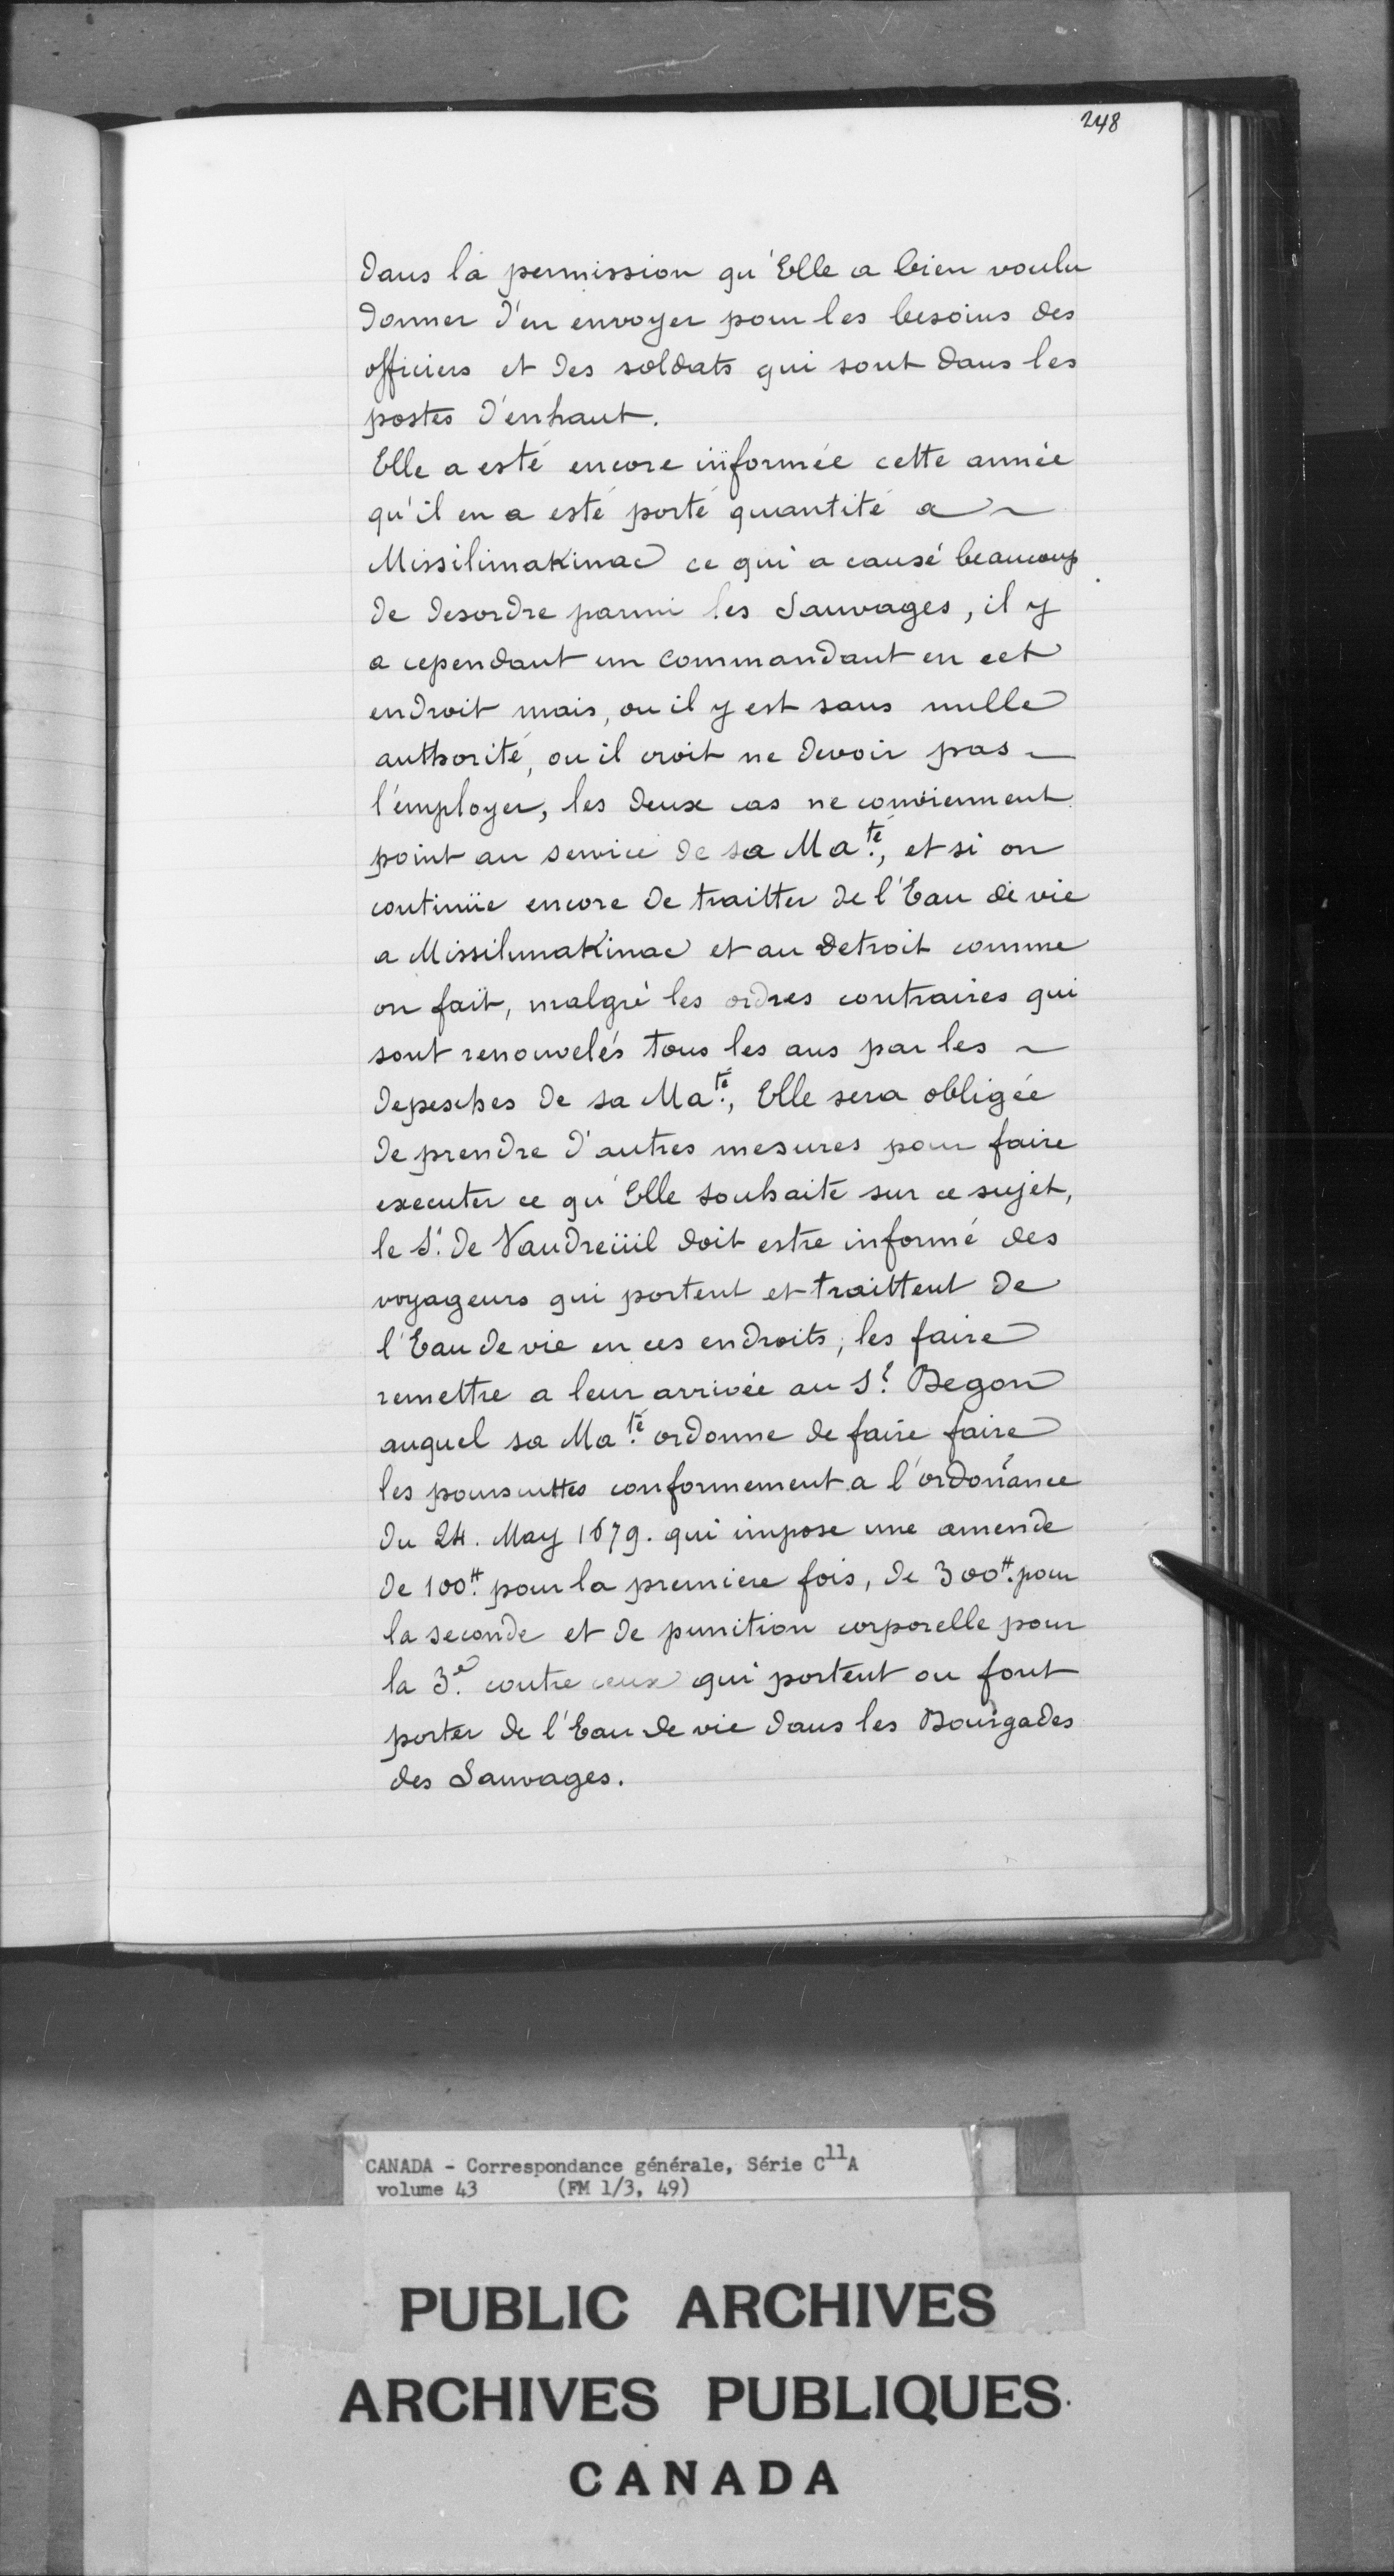 248
dans la permission qu'Elle a bien voulu
donner d'en envoyer pour les besoins des
officiers et des soldats qui sont dans les
postes d'enhaut.
Elle a esté encore informée cette année
qu'il en a esté porté quantité a ~
Missilimakinac ce qui a causé beaucoup
de desordre parmi les Sauvages, il y
a cependant un commandant en cet
endroit mais, ou il y est sans nulle
authorité, ou il croit ne devoir pas ~
l'employer, les deux cas ne conviennent
point au service de sa Ma.té, et si on
continüe encore de traitter de l'Eau de vie
a Missilimakinac et au Detroit comme
on fait, malgré les ordres contraires qui
sont renouvelés tous les ans par les ~
depesches de sa Ma.té, Elle sera obligée
de prendre d'autres mesures pour faire
executer ce qu'Elle souhaite sur ce sujet,
le S.r de Vaudreüil doit estre informé des
voyageurs qui portent et traittent de
l'Eau de vie en ces endroits, les faire
remettre a leur arrivée au S.r Begon
auquel sa Ma.té ordonne de faire faire
les poursuittes conformement a l'ordoñance
du 24. May 1679. qui impose une amende
de 100.# pour la premiere fois, de 300.# pour
la seconde et de punition corporelle pour
la 3.e contre ceux qui portent ou font
porter de l'Eau de vie dans les Bourgades
des Sauvages.
CANADA - Correspondance générale, Série C11A
volume 43 (FM 1/3, 49)
PUBLIC ARCHIVES
ARCHIVES PUBLIQUES
CANADA